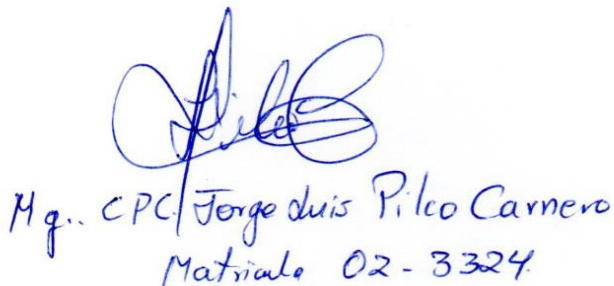 Pilco
Mg.. CPC. Jorge Luis Pilco Carnero
Matricula 02 - 3324.